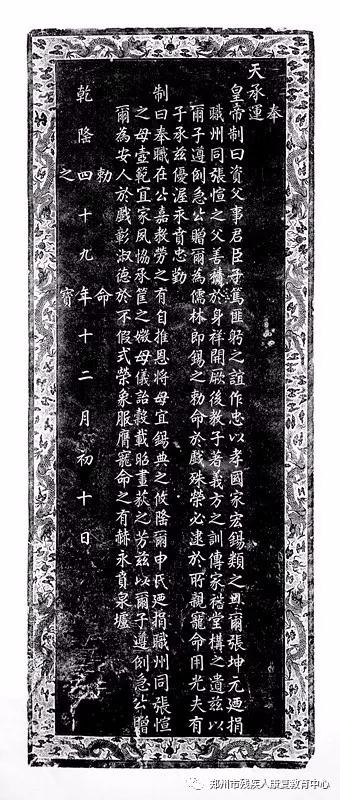 奉
天承運
皇帝制曰資父事君臣子篤匪躬之誼作忠以孝國家宏錫類之典爾張坤元迺捐
職州同張愃之父善積於身祥開厥後教子著義方之訓傳家裕堂構之遺茲以
爾子遵例急公贈爾為儒林郎錫之勅命於戲殊榮必逮於所親寵命用光夫有
子承茲優渥永賁忠勤
制曰奉職在公嘉教勞之有自推恩將母宜錫典之攸隆爾申氏迺捐職州同張愃
之母壼範宜家夙協承筐之媺母儀詒穀載昭畫荻之芳茲以爾子遵例急公贈
爾為安人於戲彰淑德於不假式榮象服膺寵命之有赫永賁泉壚
勅命
之寶
乾隆四十九年十二月初十日
郑州市残疾人康复教育中心